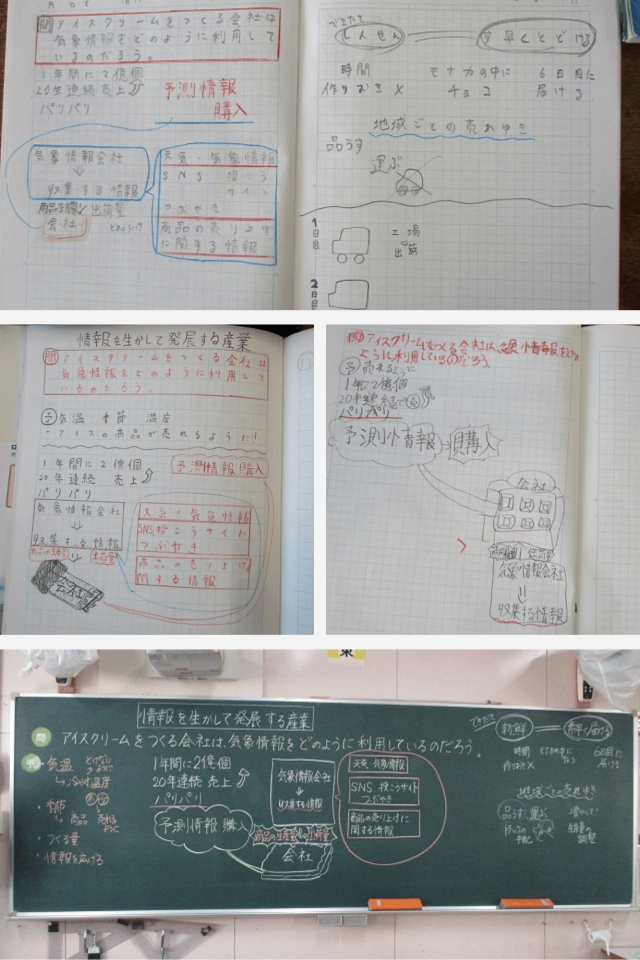 問 アイスクリームをつくる会社は
気象情報をどのように利用して
いるのだろう。
1年間に2億個
20年連続 売上
パリパリ
予測情報
購入
気象情報会社
↓
収集する情報
商品生産 出荷量
会社
天気・気象情報
SNS 投こう
サイト
つぶやき
商品の売り上げ
に関する情報
できたて
しんせん
早くとどける
時間 モナカの中に 6日目に
作りおき× チョコ 届ける
地域ごとの売れゆき
品うす
運ぶ
1日目
工場
↓
出荷
2日
情報を生かして発展する産業
問 アイスクリームをつくる会社は
気象情報をどのように利用して
いるのだろう。
予 気温 季節 温度
・アイスの商品が売れるように!
1年間に2億個
20年連続 売上
パリパリ
予測情報購入
気象情報会社
↓
収集する情報
出荷量
会社
天気・気象情報
SNS投こうサイト
つぶやき
商品の売り上げに
関する情報
問 アイスクリームをつくる会社は、気象情報をどの
ように利用しているのだろう。
予 売れるように
1年に2億個
20年連続で
パリパリ
予測情報 購入
会社
出荷量
気象情報会社
収集する情報
情報を生かして発展する産業
問 アイスクリームをつくる会社は、気象情報をどのように利用しているのだろう。
予 ・気温
とけない
ように
冷やす温度
・季節
商品 売れる
ように
・つくる量
・情報を広げる
1年間に2億個
20年連続 売上
パリパリ
予測情報 購入
気象情報会社
↓
収集する情報
商品の生産量 出荷量
会社
天気・気象情報
SNS 投こうサイト
つぶやき
商品の売り上げに
関する情報
できたて
新鮮 早く届ける
時間 モナカの中に 6日目に
作りおき× チョコ 届ける
地域ごとの売れゆき
品うす 運ぶ
トラックの
手配
生産量の
調整